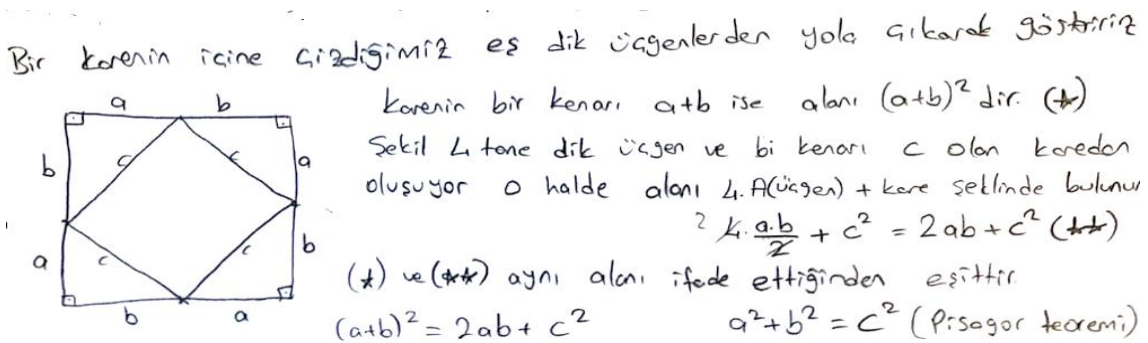 Bir karenin içine çizdiğimiz eş dik üçgenlerden yola çıkarak gösteririz
a b
Karenin bir kenarı a+b ise alanı (a+b)² dir. (★)
b c c a
Şekil 4 tane dik üçgen ve bi kenarı c olan kareden
oluşuyor o halde alanı 4. A(üçgen) + kare şeklinde bulunur
a c c b
2 4. a.b/2 + c² = 2ab + c² (★★)
(★) ve (★★) aynı alanı ifade ettiğinden eşittir.
b a
(a+b)² = 2ab + c² a²+b² = c² (Pisagor teoremi)